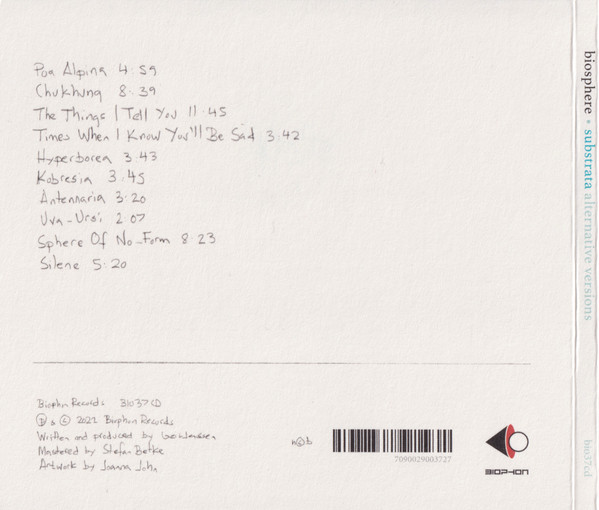 Poa Alpina 4:59
Chukhung 8:39
The Things I Tell You 11:45
Times When I Know You'll Be Sad 3:42
Hyperborea 3:43
Kobresia 3:45
Antennaria 3:20
Uva-Ursi 2:07
Sphere Of No-Form 8:23
Silene 5:20
Biophon Records BIO37CD
Ⓟ & © 2021 Biophon Records
Written and produced by Geir Jenssen
Mastered by Stefan Betke
Artwork by Joanna John
n©b
7090029003727
BIOPHON
biosphere • substrata alternative versions
bio37cd